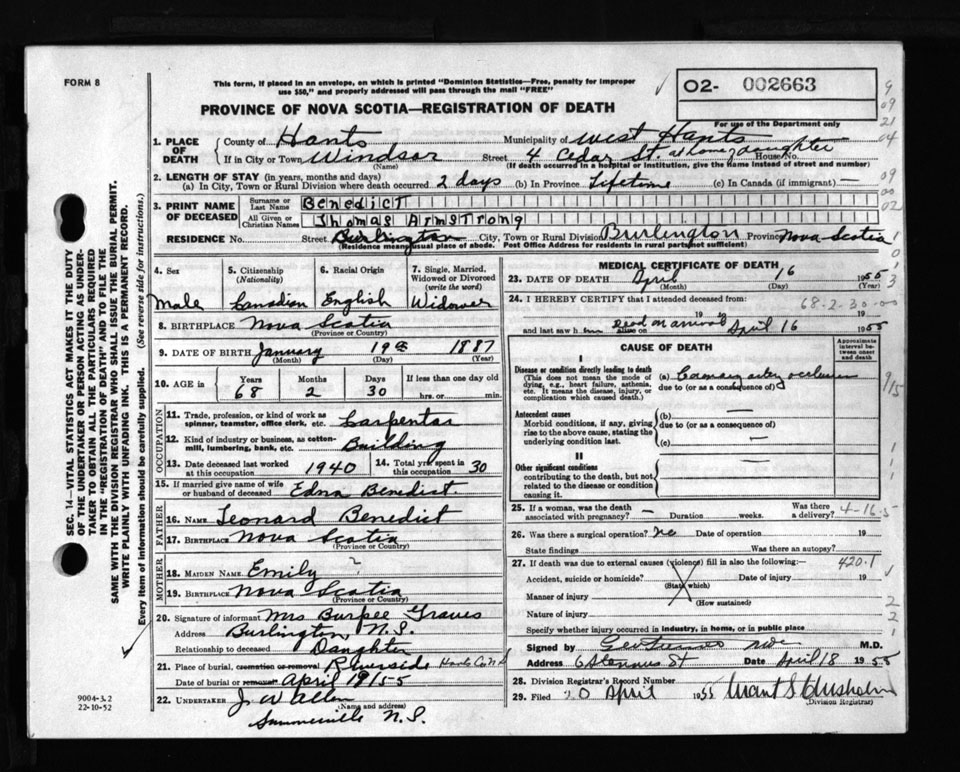 FORM 8
This form, if placed in an envelope, on which is printed "Dominion Statistics—Free, penalty for improper
use $50," and properly addressed will pass through the mail "FREE"
02- 002663
For use of the Department only
PROVINCE OF NOVA SCOTIA—REGISTRATION OF DEATH
1. PLACE OF DEATH
County of Hants Municipality of West Hants
If in City or Town Windsor Street 4 Cedar St. daughter House No.
(Name) (If death occurred in a hospital or institution, give the name instead of street and number)
2. LENGTH OF STAY (in years, months and days)
(a) In City, Town or Rural Division where death occurred 2 days (b) In Province Lifetime (c) In Canada (if immigrant) —
3. PRINT NAME OF DECEASED
Surname or Last Name Benedict
All Given or Christian Names Thomas Armstrong
RESIDENCE No. Street Burlington City, Town or Rural Division Burlington Province Nova Scotia
(Residence means usual place of abode. Post Office Address for residents in rural parts not sufficient)
4. Sex Male
5. Citizenship (Nationality) Canadian
6. Racial Origin English
7. Single, Married, Widowed or Divorced (write the word) Widower
8. BIRTHPLACE Nova Scotia
(Province or Country)
9. DATE OF BIRTH January 19 1887
(Month) (Day) (Year)
10. AGE in Years 68 Months 2 Days 30 If less than one day old hrs. or min.
OCCUPATION
11. Trade, profession, or kind of work as spinner, teamster, office clerk, etc. Carpenter
12. Kind of industry or business, as cotton-mill, lumbering, bank, etc. Building
13. Date deceased last worked at this occupation 1940 14. Total yrs. spent in this occupation 30
15. If married give name of wife or husband of deceased Edna Benedict.
FATHER
16. NAME Leonard Benedict
17. BIRTHPLACE Nova Scotia
(Province or Country)
MOTHER
18. MAIDEN NAME Emily ?
19. BIRTHPLACE Nova Scotia
(Province or Country)
20. Signature of informant Mrs Burpee Graves
Address Burlington, N.S.
Relationship to deceased Daughter
21. Place of burial, cremation or removal Riverside Hants Co N S
Date of burial or removal April 19 1955
22. UNDERTAKER J. W Allen
(Name and address)
Summerville N.S.
MEDICAL CERTIFICATE OF DEATH
23. DATE OF DEATH April 16 1955
(Month) (Day)
24. I HEREBY CERTIFY that I attended deceased from:
68-2-30-00
19 to 19
and last saw h im alive on Dead on arrival April 16 1955
CAUSE OF DEATH
Approximate interval between onset and death
I
Disease or condition directly leading to death
(This does not mean the mode of dying, e.g., heart failure, asthenia, etc. It means the disease, injury, or complication which caused death.)
(a) Coronary artery occlusion
due to (or as a consequence of)
Antecedent causes
Morbid conditions, if any, giving rise to the above cause, stating the underlying condition last.
(b) —
due to (or as a consequence of)
(c) —
II
Other significant conditions
contributing to the death, but not related to the disease or condition causing it.
25. If a woman, was the death associated with pregnancy? — Duration weeks. Was there a delivery?
4-16-5
26. Was there a surgical operation? No Date of operation 19
State findings Was there an autopsy?
27. If death was due to external causes (violence) fill in also the following:— 420.1
Accident, suicide or homicide? Date of injury 19
(State which)
Manner of injury
(How sustained)
Nature of injury
Specify whether injury occurred in industry, in home, or in public place
Signed by M.D.
Address St Date April 18 1955
28. Division Registrar's Record No.
29. Filed 20 April 1955
(Division Registrar)
SEC. 14—VITAL STATISTICS ACT MAKES IT THE DUTY
OF THE UNDERTAKER OR PERSON ACTING AS UNDER-
TAKER TO OBTAIN ALL THE PARTICULARS REQUIRED
IN THE "REGISTRATION OF DEATH" AND TO FILE THE
SAME WITH THE DIVISION REGISTRAR WHO SHALL ISSUE THE BURIAL PERMIT.
WRITE PLAINLY WITH UNFADING INK. THIS IS A PERMANENT RECORD.
Every item of information should be carefully supplied. (See reverse side for instructions.)
9004-3.2
22-10-52